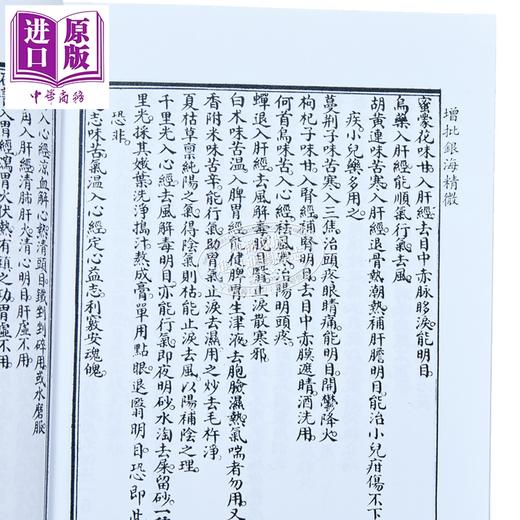 增批銀海精微
蜜蒙花味甘入肝經去目中赤脉眵淚能明目
烏藥入肝經能順氣行氣去風
胡黃連味苦寒入肝經退骨熱潮熱補肝膽明目能治小兒疳傷不下
疾小兒藥多用之
蔓荊子味苦寒入三焦治頭疼眼睛痛能明目開鬱降火
枸杞子味甘入腎經補腎明目去目中赤膜遮睛酒洗用
何首烏味苦入心經祛風寒治陽明頭疼
蟬退入肝經去風解毒脫目翳止淚散寒邪
白木味苦溫入脾胃經能健脾胃生津液去胞臉濕熱氣喘者勿用又
香附米味苦辛能行氣助胃氣止淚去濕用之炒去毛杵淨
夏枯草禀純陽之氣得陰氣則枯能止淚去風以陽補陰之理
千里光入心經去風解毒明目亦能行氣即夜明砂水淘去屎留砂一種
里光採其嫩葉洗淨搗汁熬成膏單用點眼退翳明目恐即此
恐非
志味苦氣溫入心經定心益志利竅安魂魄
入心經涼血解心熱清頭目鐵剉剉碎用或水磨服
角入肝經清肺肝火清心明目肝虛不用
膏入胃經瀉胃火伏熱有頭之功胃虛不用
進口原版
中華商務